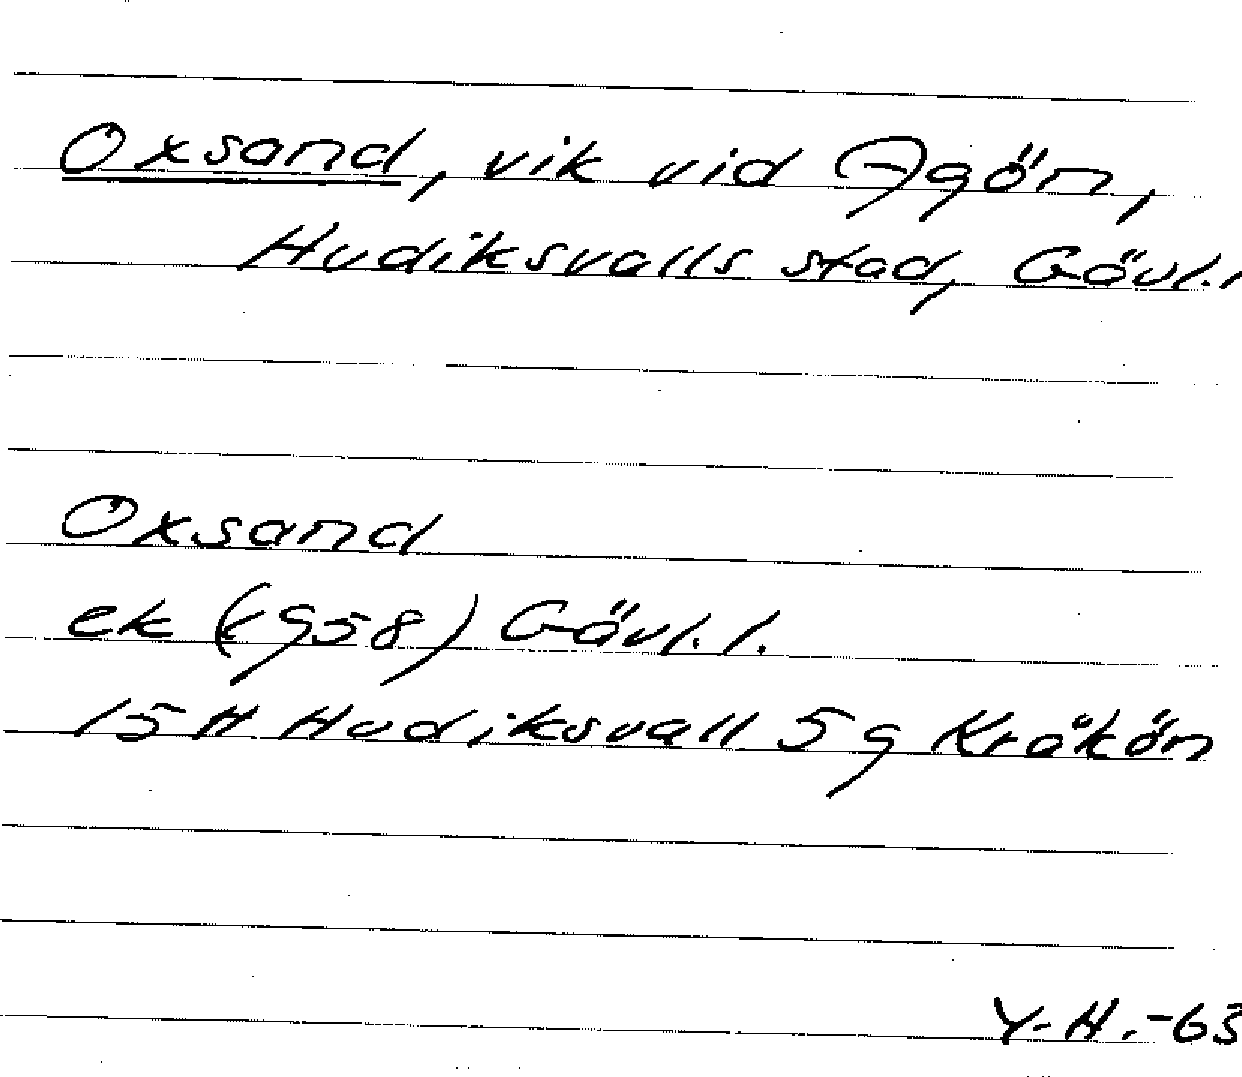 Oxsand, vik vid Agön,
Hudiksvalls stad, Gävl.l
Oxsand
ek (1958) Gävl.l.
15 H Hudiksvall 5g Kråkön
Y-H.-63